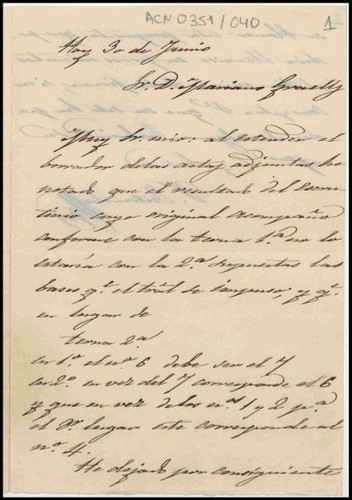 ACN 0359/040
1
Hoy 30 de Junio
Sr. D. Mariano Graells
Muy Sr. mio: al estender el
borrador de las actas adjuntas he
notado que el resultado del Escru-
tinio cuyo original acompaño
conforme con la terna 1.ª no lo
estaria con la 2.ª supuestas las
bases q.e el tral de censura; y q.e
en lugar de
terna 2.ª
en 1.º el n.º 6 debe ser el 7
en 2.º en vez del 7 corresponde el 6
y que en vez de los n.os 1 y 2 p.a
el 3.er lugar este corresponde al
n.º 4.
He dejado por consiguiente